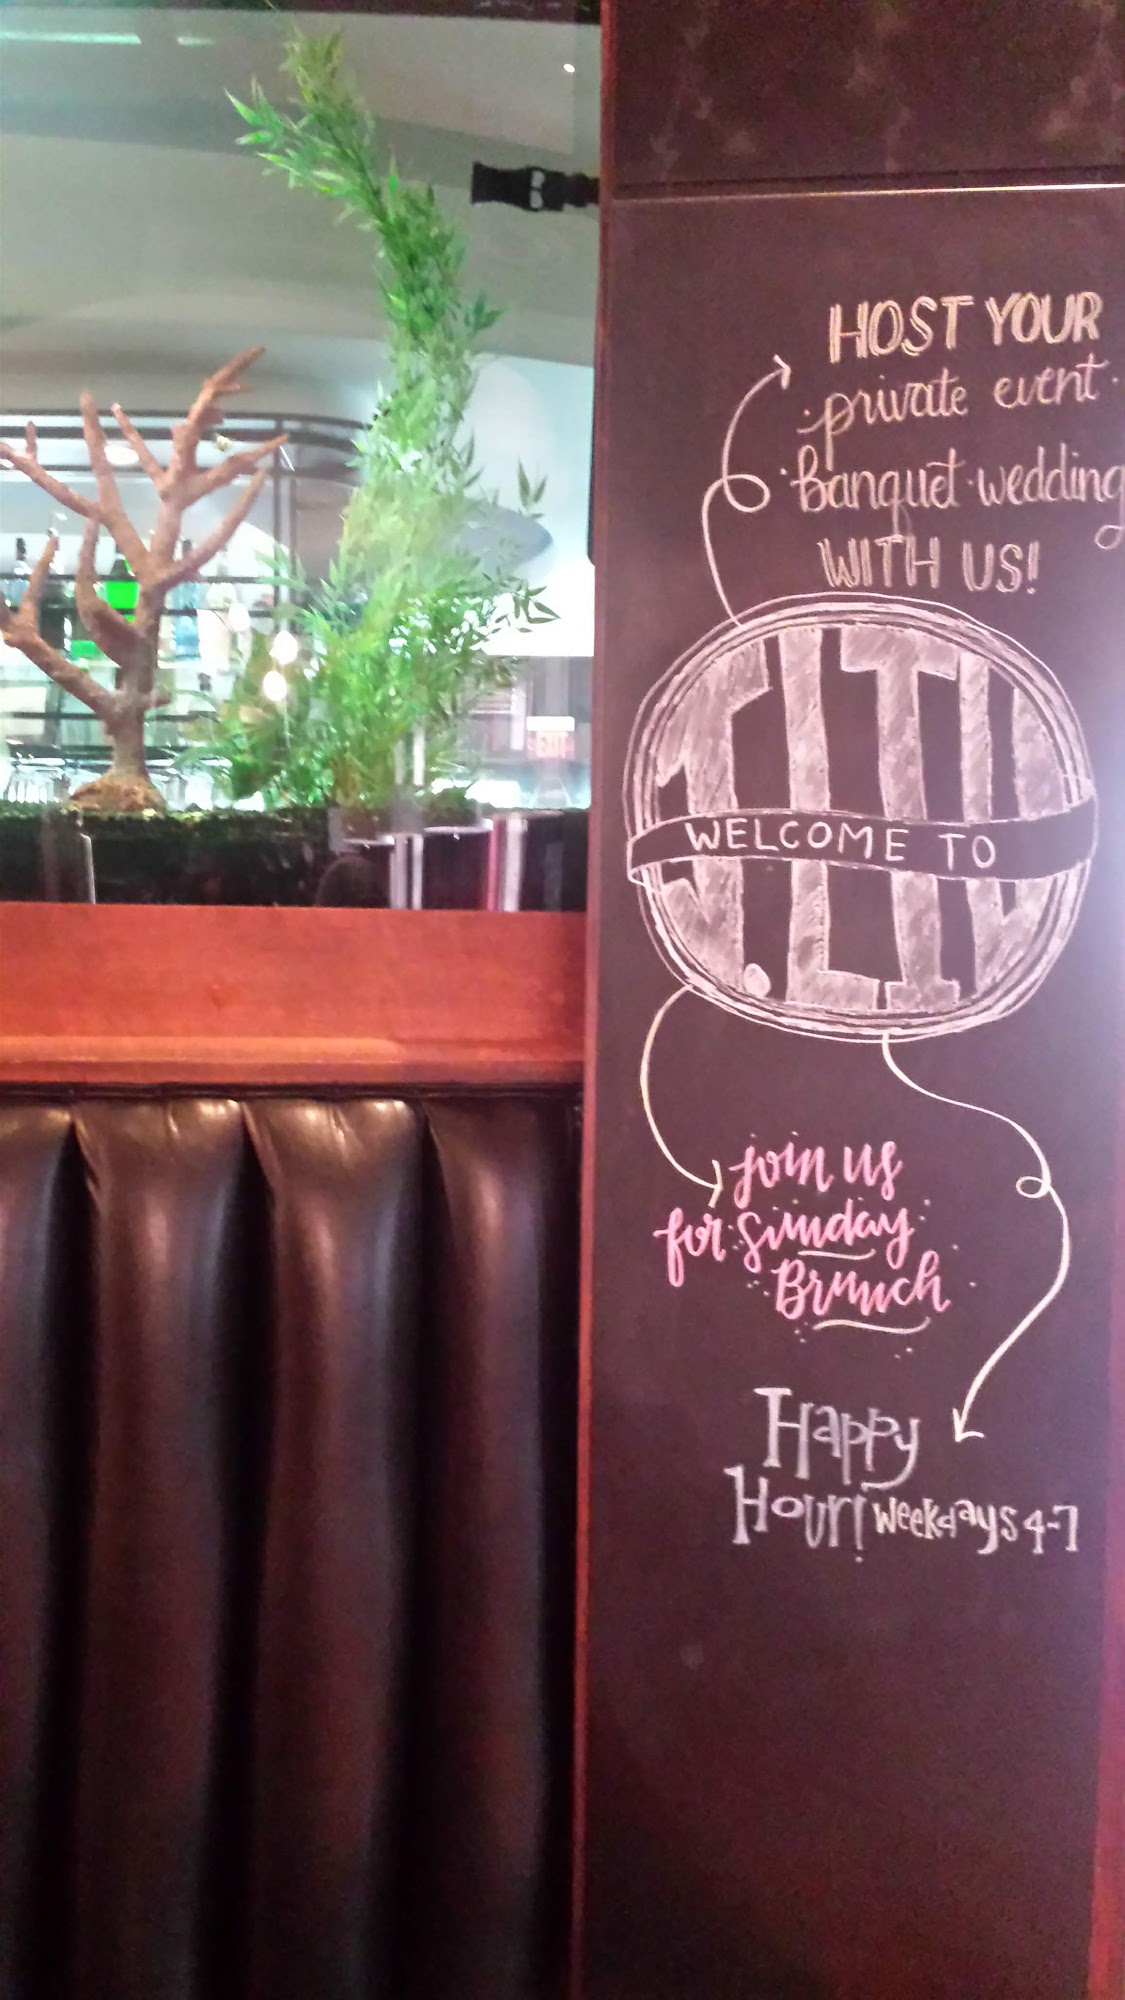 HOST YOUR
private event
Banquet wedding
WITH US!
WELCOME TO
join us
for Sunday
Brunch
Happy
Hour! weekdays 4-7